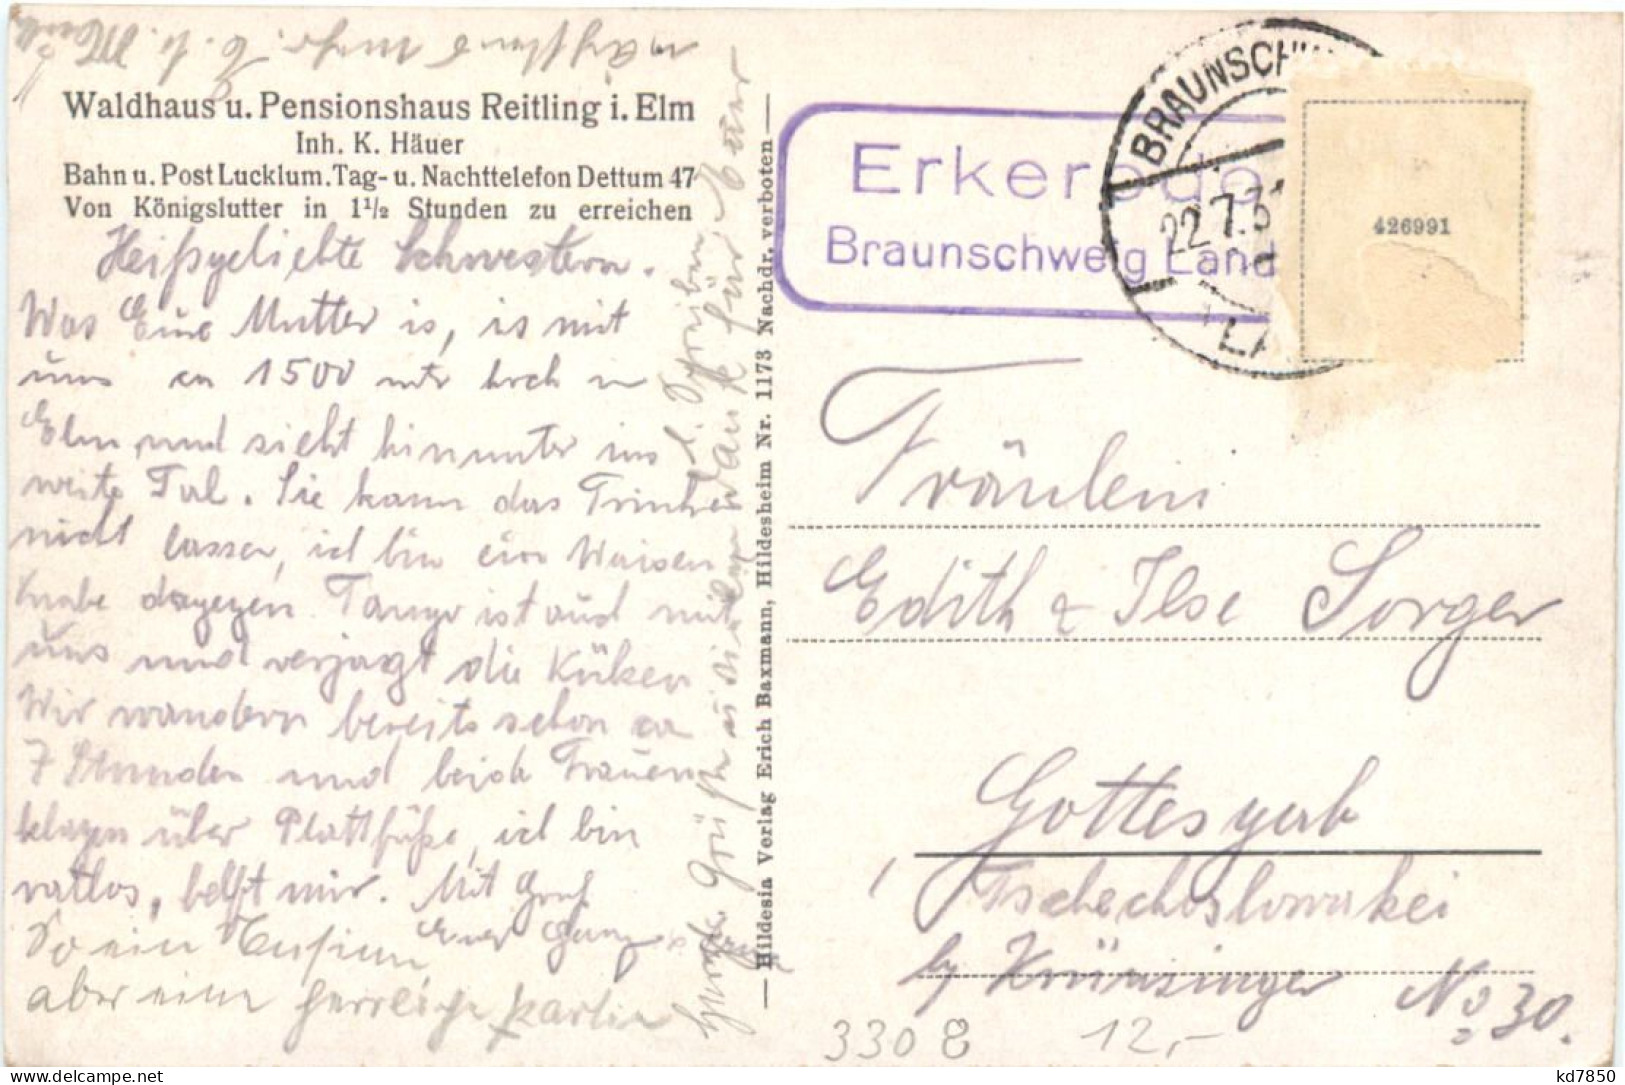 Waldhaus u. Pensionshaus Reitling i. Elm
Inh. K. Häuer
Bahn u. Post Lucklum. Tag- u. Nachttelefon Dettum 47
Von Königslutter in 1½ Stunden zu erreichen
Heißgeliebte Schwestern.
Was Eure Mutter is, is mit
uns ca 1500 mtr hoch im
Elm und sieht hinunter ins
weite Tal. Sie kann das Trinken
nicht lassen, ich bin ein Waisen
knabe dagegen. Tango ist auch mit
uns und verjagt die Küken
Wir wandern bereits schon ca
7 Stunden und beide Frauen
klagen über Plattfüße, ich bin
ratlos, helft mir. Mit Gruß
Euer
So ein
aber eine partie
Dank für Euer
l. Schreiben
Grüße
Hildesia Verlag Erich Baxmann, Hildesheim Nr. 1173 Nachdr. verboten
Erkerode
Braunschweig Land
BRAUNSCHW
22.7.31
LA
426991
Fräulein
Edith & Ilse Sorger
Gottesgab
Tschechoslowakei
No 30.
3308 12,-
kd7850